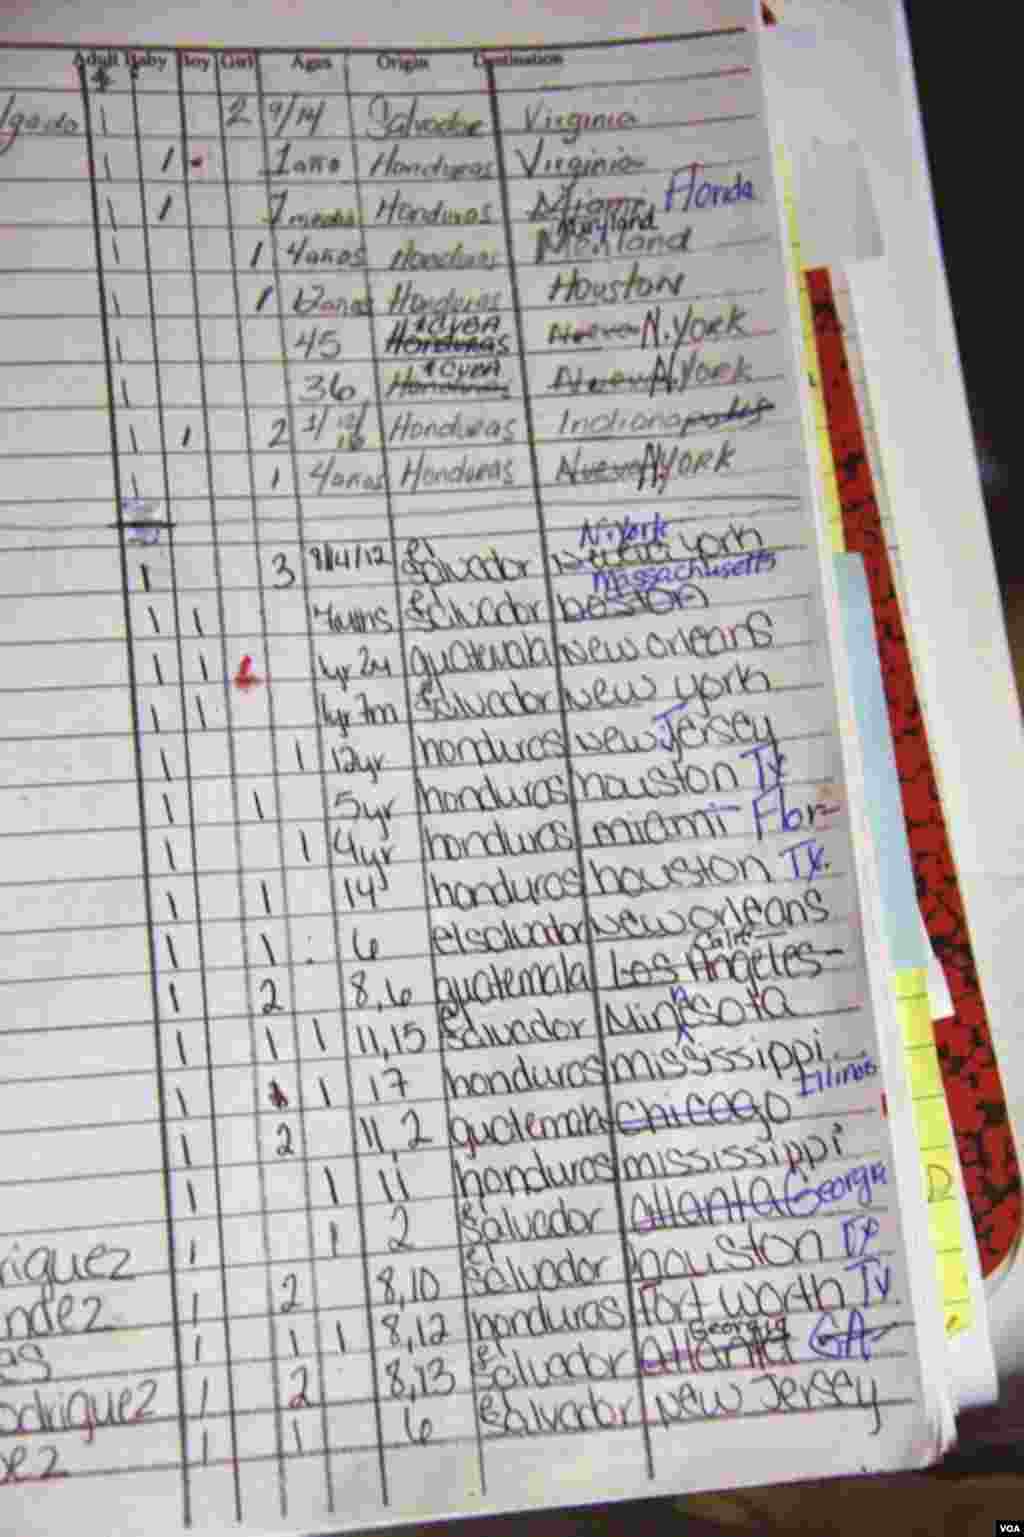 Adult Baby Boy Girl Ages Origin Destination
lgado 1 2 9/14 Salvador Virginia
1 1 1 año Honduras Virginia
1 1 7 meses Honduras Miami Florida
Maryland
1 1 4 años Honduras Meriland
1 1 12 anos Honduras Houston
CUBA
1 45 Honduras Nueva N. York
CUBA
1 36 Honduras N. York
1 1 2 Honduras Indianapolis
1 1 4 anos Honduras Nueva N. York
N. York
1 3 8/4/12 el Salvador york
Massachusetts
1 1 el Salvador boston
1 1 1yr 2m guatemala new orleans
1 1 1yr 7m el Salvador new york
1 1 12yr honduras new Jersey
1 1 5yr honduras houston Tx
1 1 4yr honduras miami Flor-
1 1 14 honduras houston Tx.
1 1 6 el salvador new orleans
Calif-
1 2 8,6 guatemala Los Angeles-
1 1 1 11,15 el Salvador Minnesota
1 1 17 honduras mississippi
Ilinois
1 2 11,2 guatemala chicago
1 1 11 honduras mississippi
1 1 2 el Salvador atlanta Georgia
riguez 1 2 8,10 el Salvador houston TX
ndez 1 1 1 8,12 honduras Fort worth Tx.
Georgia
as 1 2 8,13 el Salvador atlanta GA
odriguez 1 1 6 el Salvador new Jersey
ez
D
VOA